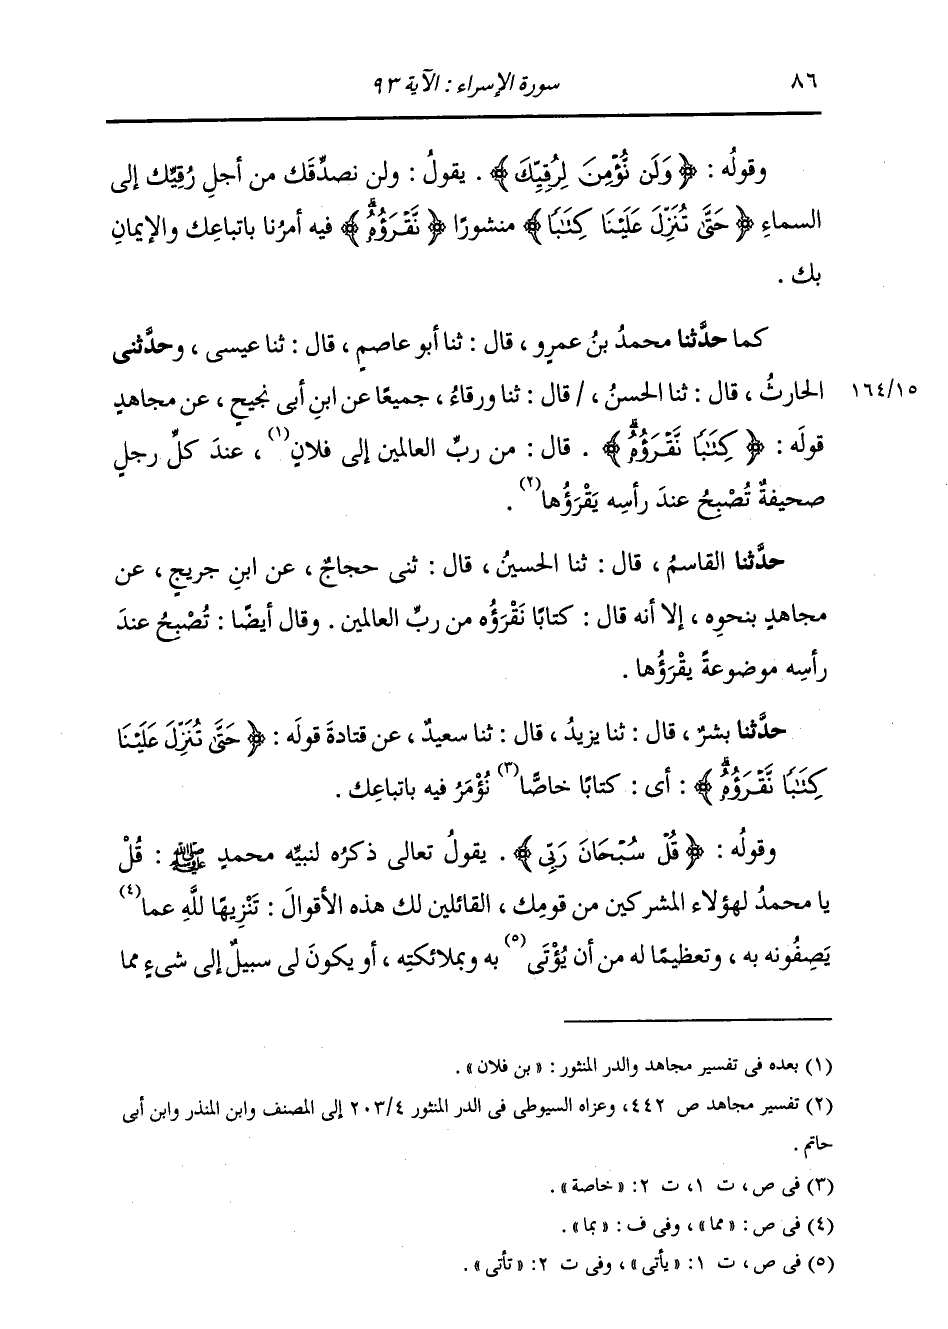 ٨٦ سورة الإسراء : الآية ٩٣
وقولُه : ﴿ وَلَن نُّؤْمِنَ لِرُقِيِّكَ ﴾ . يقولُ : ولن نصدِّقَك من أجلِ رُقِيِّك إلى
السماءِ ﴿ حَتَّىٰ تُنَزِّلَ عَلَيْنَا كِتَٰبًا ﴾ منشورًا ﴿ نَّقْرَؤُهُۥ ﴾ فيه أمرُنا باتباعِك والإيمانِ
بك .
كما حدَّثنا محمدُ بنُ عمرٍو ، قال : ثنا أبو عاصمٍ ، قال : ثنا عيسى ، وحدَّثنى
١٦٤/١٥ الحارثُ ، قال : ثنا الحسنُ ، / قال : ثنا ورقاءُ ، جميعًا عن ابنِ أبى نجيحٍ ، عن مجاهدٍ
قولَه : ﴿ كِتَٰبًا نَّقْرَؤُهُۥ ﴾ . قال : من ربِّ العالمين إلى فلانٍ(١) ، عندَ كلِّ رجلٍ
صحيفةٌ تُصْبِحُ عندَ رأسِه يَقْرَؤُها(٢) .
حدَّثنا القاسمُ ، قال : ثنا الحسينُ ، قال : ثنى حجاجٌ ، عن ابنِ جريجٍ ، عن
مجاهدٍ بنحوِه ، إلا أنه قال : كتابًا نَقْرَؤُه من ربِّ العالمين . وقال أيضًا : تُصْبِحُ عندَ
رأسِه موضوعةً يقْرَؤُها .
حدَّثنا بشرٌ ، قال : ثنا يزيدُ ، قال : ثنا سعيدٌ ، عن قتادةَ قولَه : ﴿ حَتَّىٰ تُنَزِّلَ عَلَيْنَا
كِتَٰبًا نَّقْرَؤُهُۥ ﴾ : أى : كتابًا خاصًّا(٣) نُؤْمَرُ فيه باتباعِك .
وقولُه : ﴿ قُلْ سُبْحَانَ رَبِّى ﴾ . يقولُ تعالى ذكرُه لنبيِّه محمدٍ ﷺ : قُلْ
يا محمدُ لهؤلاء المشركين من قومِك ، القائلين لك هذه الأقوالَ : تَنْزِيهًا للَّهِ عما(٤)
يَصِفُونه به ، وتعظيمًا له من أن يُؤْتَى(٥) به وبملائكتِه ، أو يكونَ لى سبيلٌ إلى شىءٍ مما
(١) بعده فى تفسير مجاهد والدر المنثور : « بن فلان » .
(٢) تفسير مجاهد ص ٤٤٢، وعزاه السيوطى فى الدر المنثور ٢٠٣/٤ إلى المصنف وابن المنذر وابن أبى
حاتم .
(٣) فى ص ، ت ١، ت ٢: « خاصة » .
(٤) فى ص : « مما » ، وفى ف : « بما » .
(٥) فى ص ، ت ١: « يأتى » ، وفى ت ٢: « تأتى » .